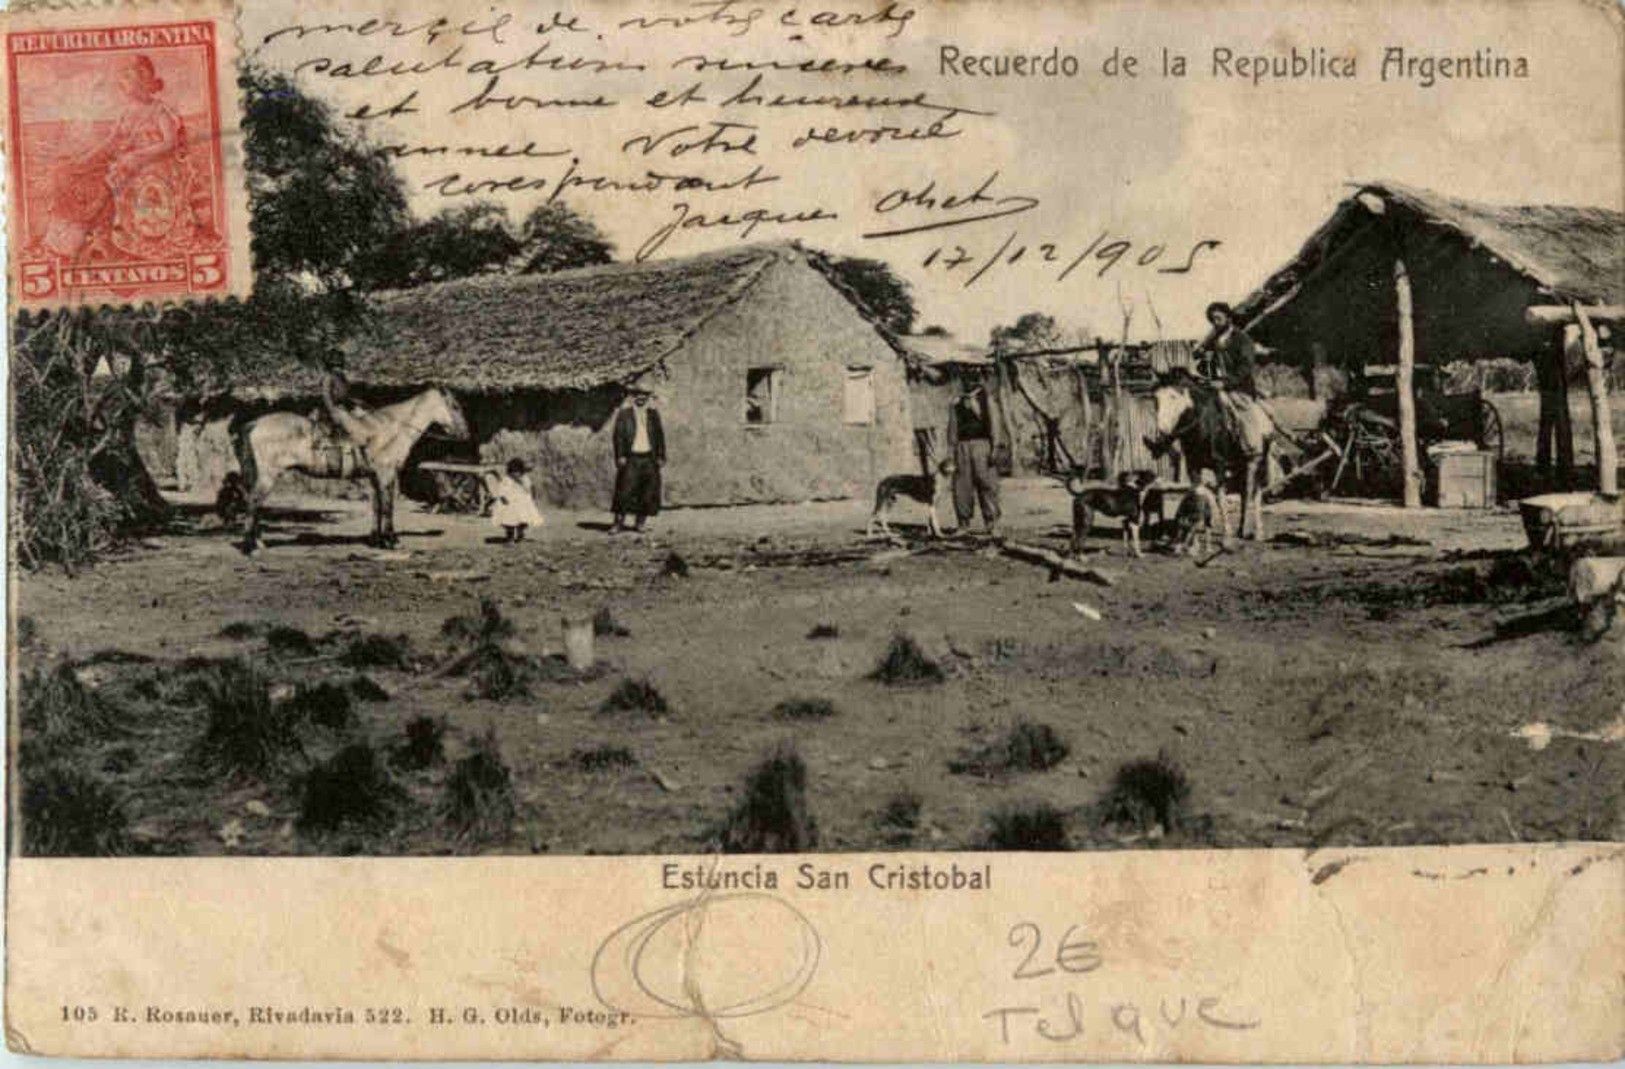 REPUBLICA ARGENTINA
5 CENTAVOS 5
merçie de votre carte
salutations sinceres
et bonne et heureuse
annee. Votre devoué
corespondant
Jacques
17/12/905
Recuerdo de la Republica Argentina
Estancia San Cristobal
2€
Tel que
105 R. Rosauer, Rivadavia 522. H. G. Olds, Fotogr.